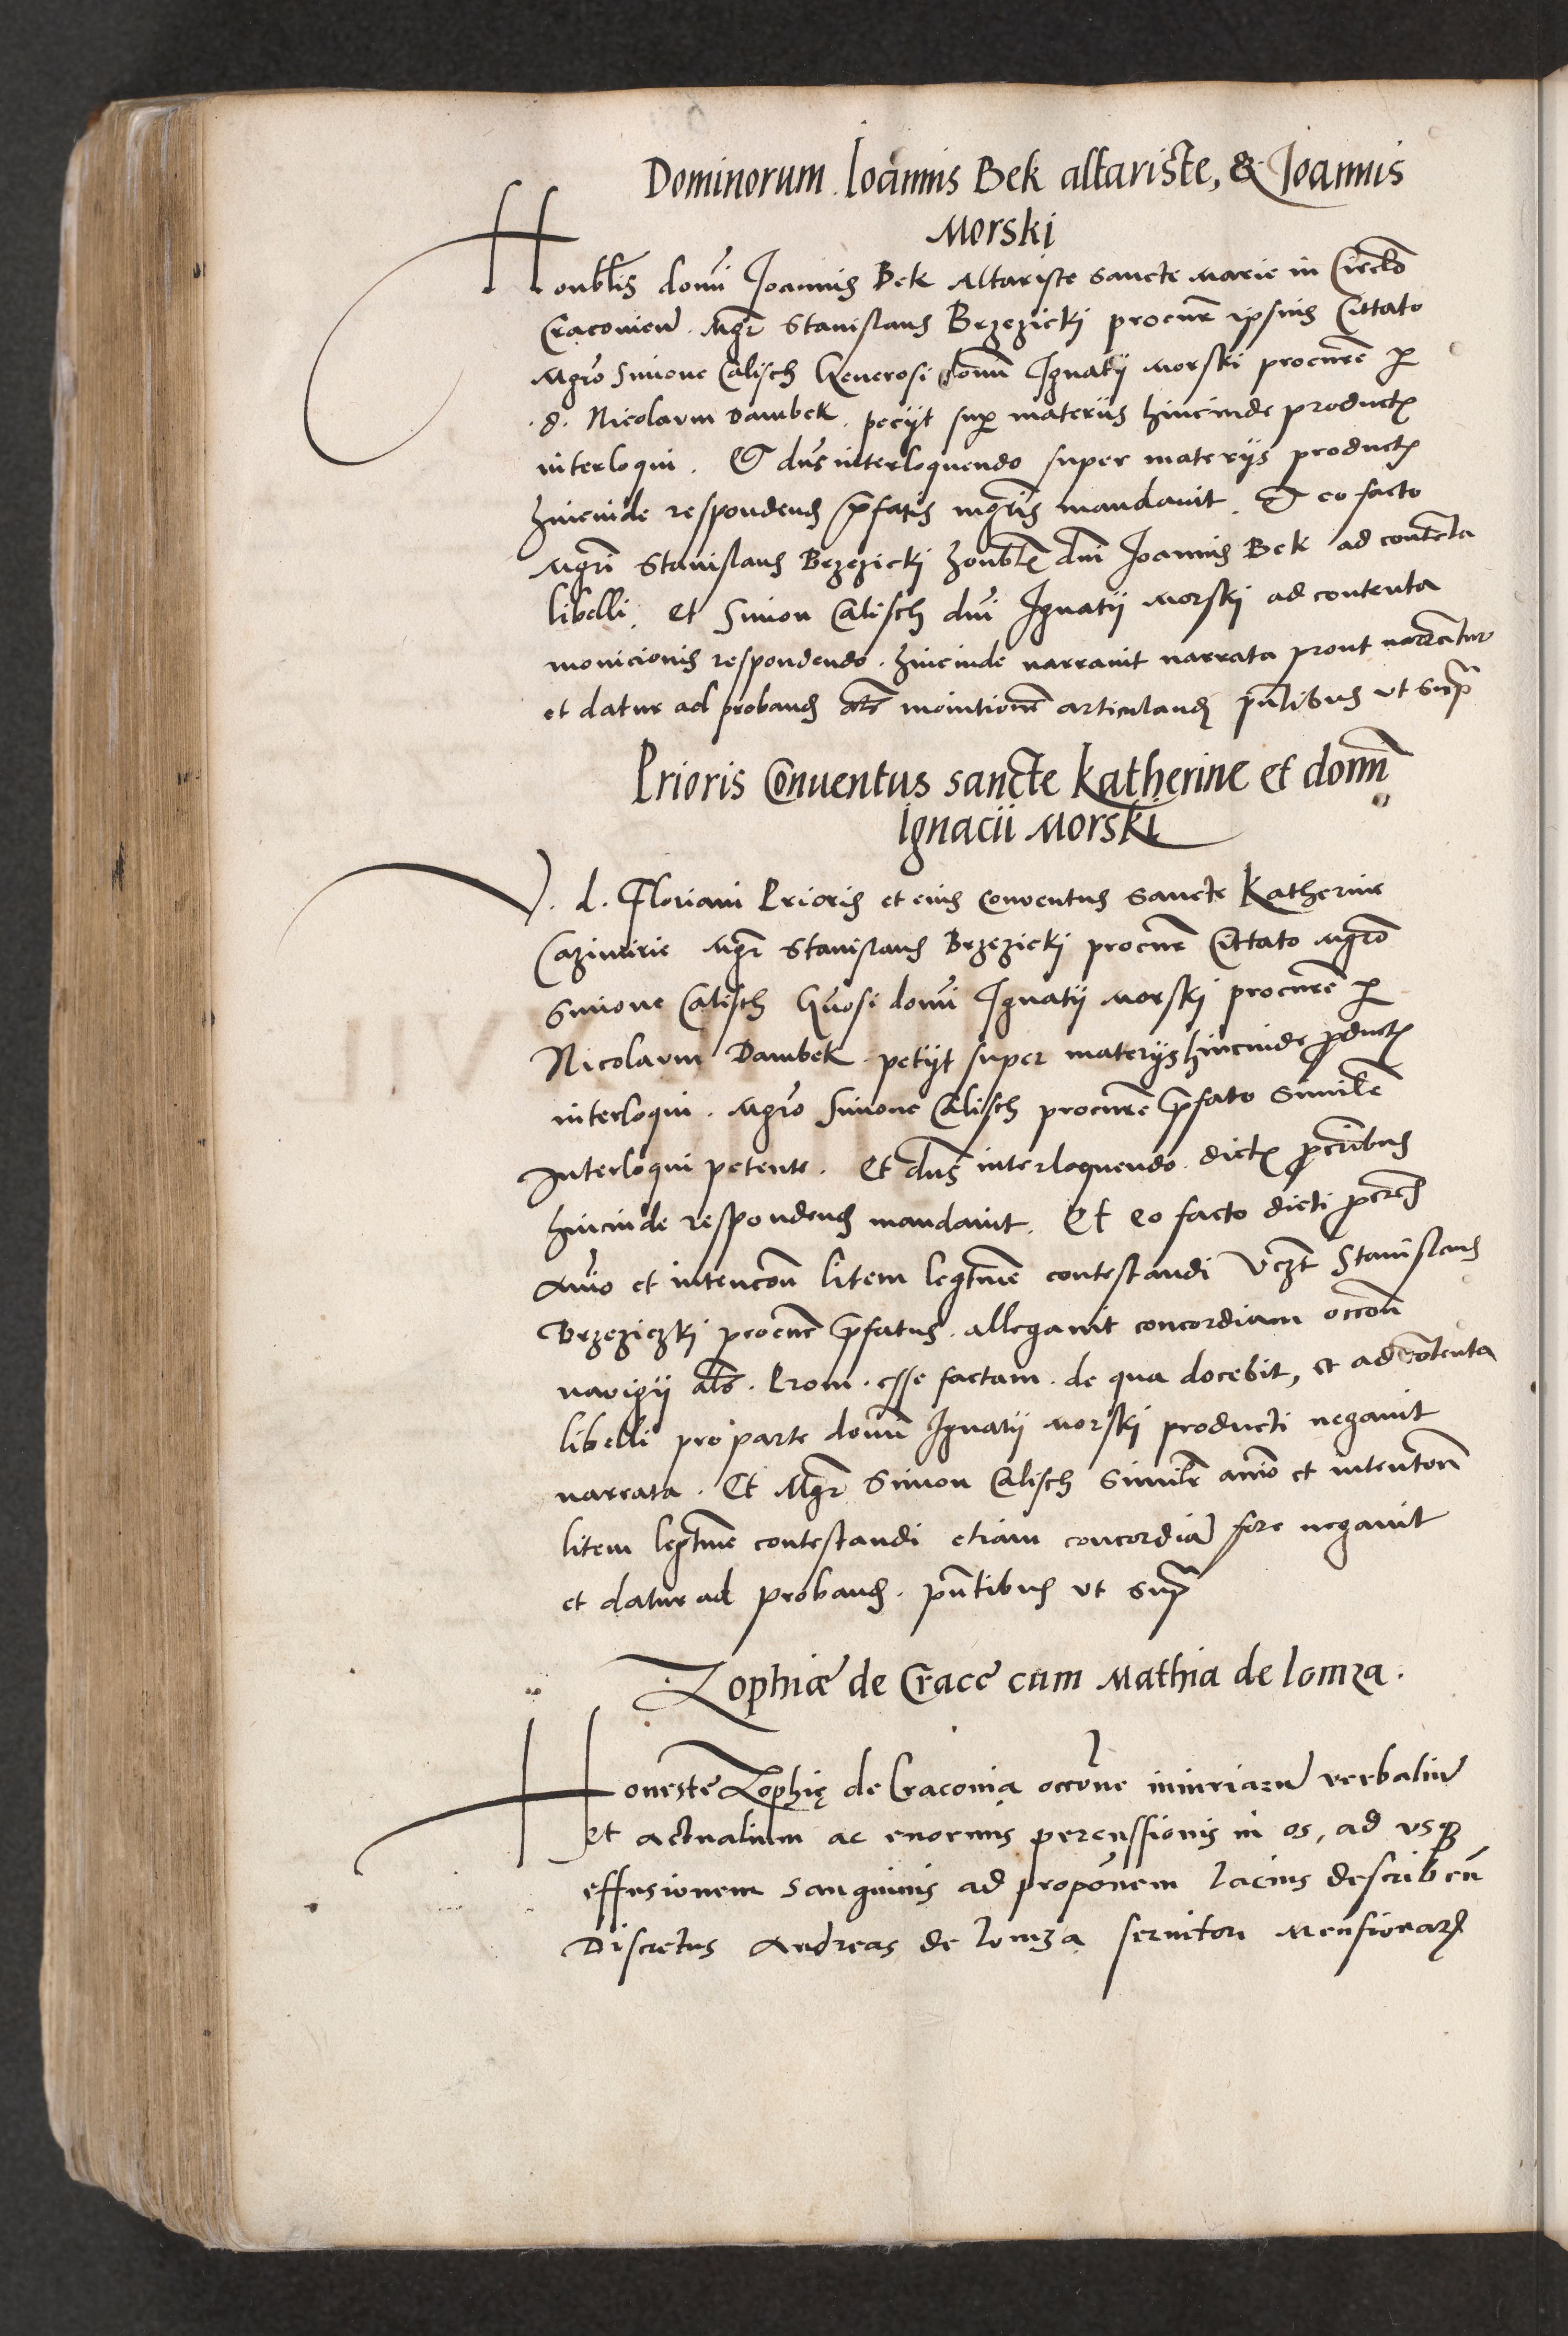 Dominorum Ioannis Bek altariste, & Joannis
Morski
Honblis domi Joannis Bek Altariste sancte Marie in Circlo
Cracovien Mgr Stanislaus Brzezicki procur ipsius Cittato
Mgro Simone Calisch Generosi domi Ignatij Morski procure p
d. Nicolaum Dambek. petijt sup materiis hincinde product
interloqui. Et dns interloquendo super materijs product
hincinde respondend pfatis mgris mandavit. Et eo facto
Mgri Stanislaus Brzezicki honbl dni Joannis Bek ad contenta
libelli. et Simon Calisch dni Ignatij Morski ad contenta
monicionis respondendo. hincinde narravit narrata prout narrantur
et datur ad proband als monitione articuland pntibus ut supra
Prioris Conventus sancte Katherine et domi
Ignacii Morski
V. d. Floriani Prioris et eius Conventus sancte Katherine
Cazimirie Mgr Stanislaus Brzezicki procur Cittato Mgro
Simone Calisch Gnosi domi Ignatij Morski procure p
Nicolaum Dambek petijt super materijs hincinde product
interloqui. Mgro Simone Calisch procure pfato simile
Interloqui petente. Et dns interloquendo. dict pcribus
hincinde respondend mandavit. Et eo facto dicti pcres
Anio et intencon litem legtme contestandi Vczt Stanislaus
Brzeziczki procur pfatus. allegavit concordiam occon
navigij als. Prom. esse factam. de qua docebit, et ad contenta
libelli pro parte domi Ignatij Morski producti negavit
narrata. Et Mgr Simon Calisch simile anio et intenton
litem legtme contestandi etiam concordia fore negavit
et datur ad proband. pntibus ut supra
Zophiæ de Cracc cum Mathia de lomza.
Honeste Zophię de Cracovia occone iniuriarum verbalium
et actualium ac enormis percussionis in os, ad usq
effusionem sanguinis ad proponem lacius describen
Discretus Andreas de lomza servitor Mensionar